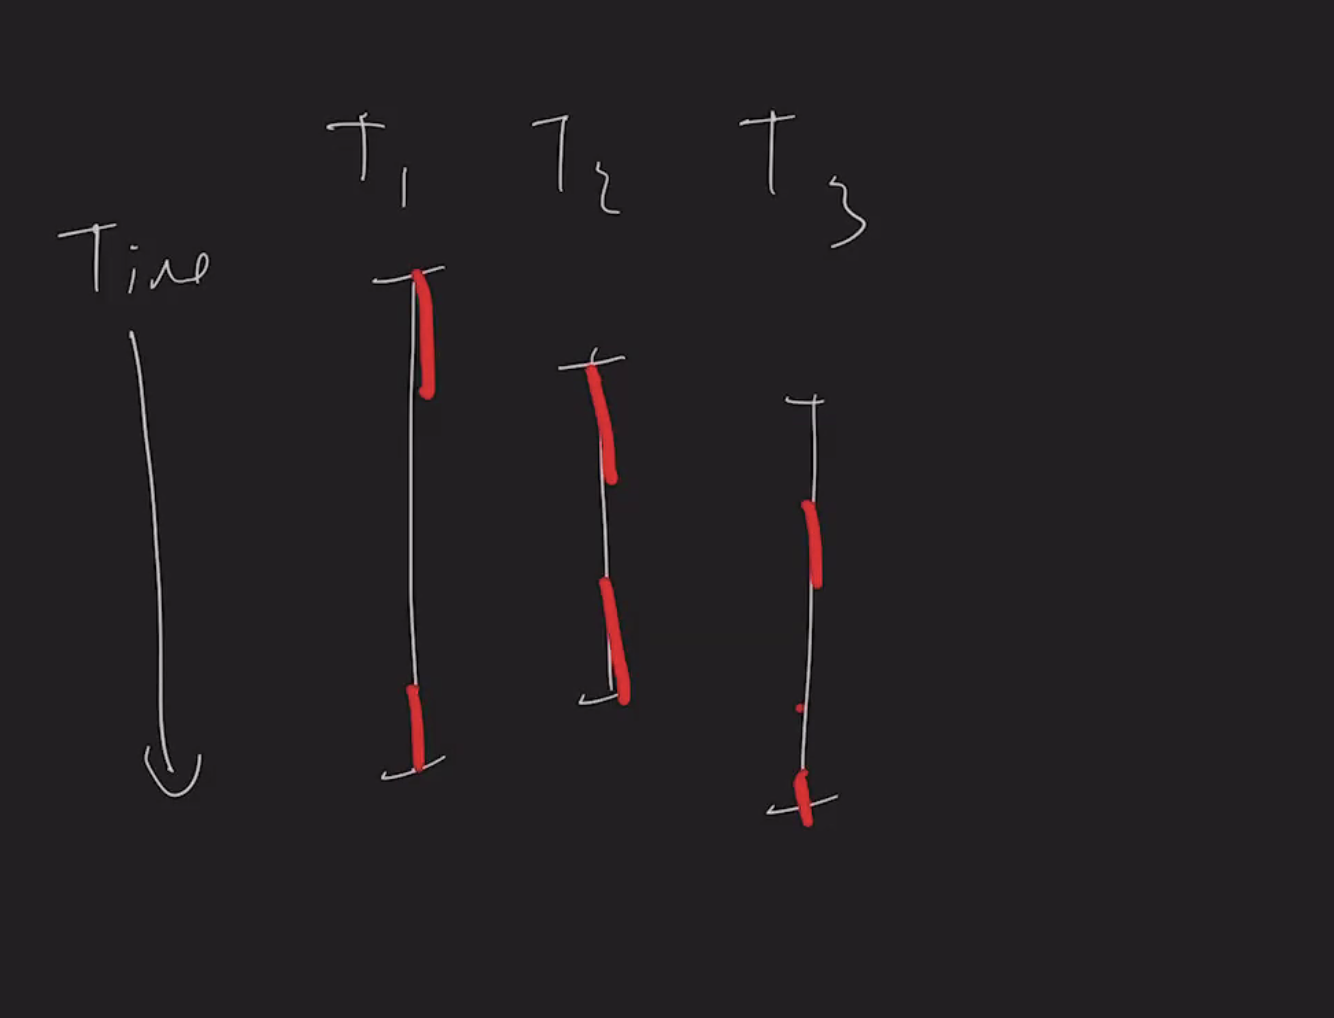 T1 T2 T3
Time